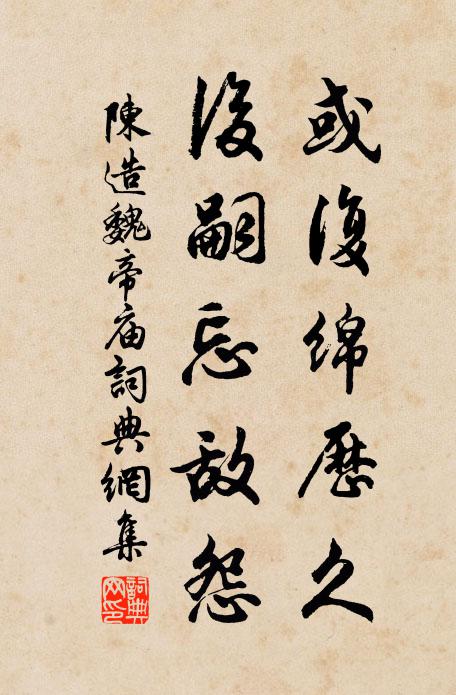 或復綿歷久
後嗣忘敵怨
陳造魏帝廟詞典網集
詞典網印